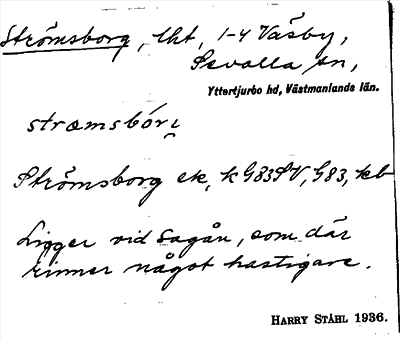 Strömsborg, lht, 1-4 Väsby,
Sevalla sn,
Yttertjurbo hd, Västmanlands län.
strœmsbórı̯
Strömsborg ek, k G83SV, G83, kb
Ligger vid Sagån, som där
rinner något hastigare.
HARRY STÅHL 1936.